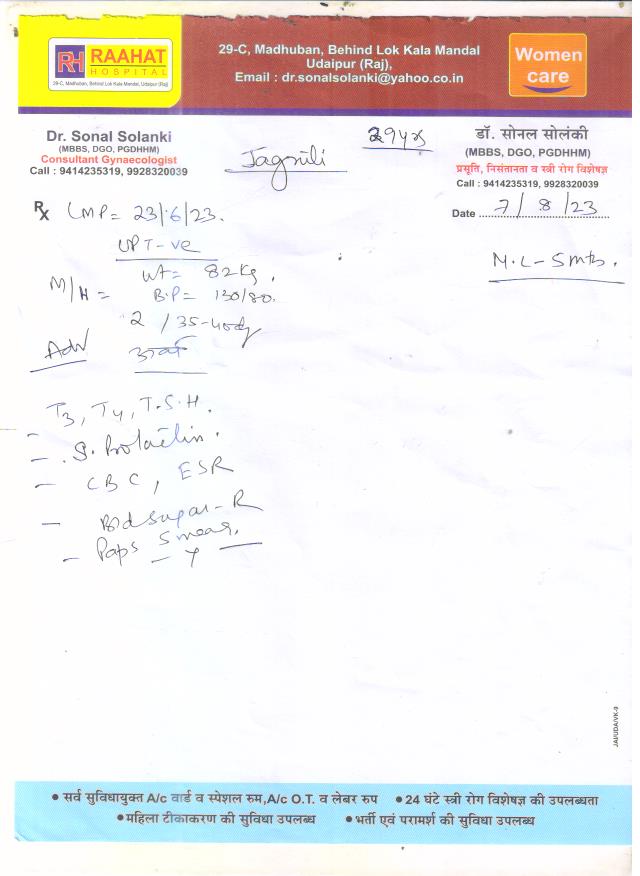 RH RAAHAT
HOSPITAL
29-C, Madhuban, Behind Lok Kala Mandal, Udaipur (Raj)
29-C, Madhuban, Behind Lok Kala Mandal
Udaipur (Raj),
Email : dr.sonalsolanki@yahoo.co.in
Women
care
Dr. Sonal Solanki
(MBBS, DGO, PGDHHM)
Consultant Gynaecologist
Call : 9414235319, 9928320039
29yrs
डॉ. सोनल सोलंकी
(MBBS, DGO, PGDHHM)
प्रसूति, निसंतानता व स्त्री रोग विशेषज्ञ
Call : 9414235319, 9928320039
Date 7/8/23
Rx LMP = 23/6/23.
UPT-ve
M.L-5mts.
wt = 82kg.
M/H = B.P = 130/80.
2/35-40dy
Adv
T3, T4, T.S.H.
- S. Prolactin.
- CBC, ESR
- Bld sugar-R
- Paps smear.
JAI/UDA/VK-9
• सर्व सुविधायुक्त A/c वार्ड व स्पेशल रुम,A/c O.T. व लेबर रुप • 24 घंटे स्त्री रोग विशेषज्ञ की उपलब्धता
• महिला टीकाकरण की सुविधा उपलब्ध • भर्ती एवं परामर्श की सुविधा उपलब्ध